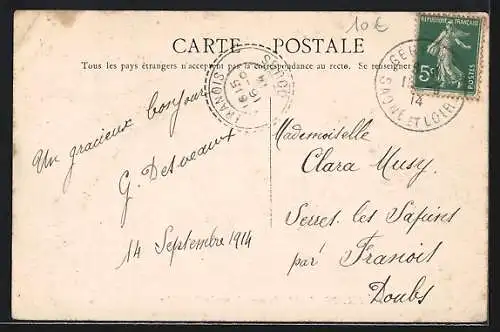 10€
CARTE POSTALE
Tous les pays étrangers n'acceptent pas la correspondance au recto. Se renseigner
RÉPUBLIQUE FRANÇAISE
5c
POSTES
SAONE ET LOIRE
14
FRANOIS
15
16
Un gracieux bonjour
G. Desveaux
14 Septembre 1914
Mademoiselle
Clara Musy.
Serres les Sapins
par Franois
Doubs